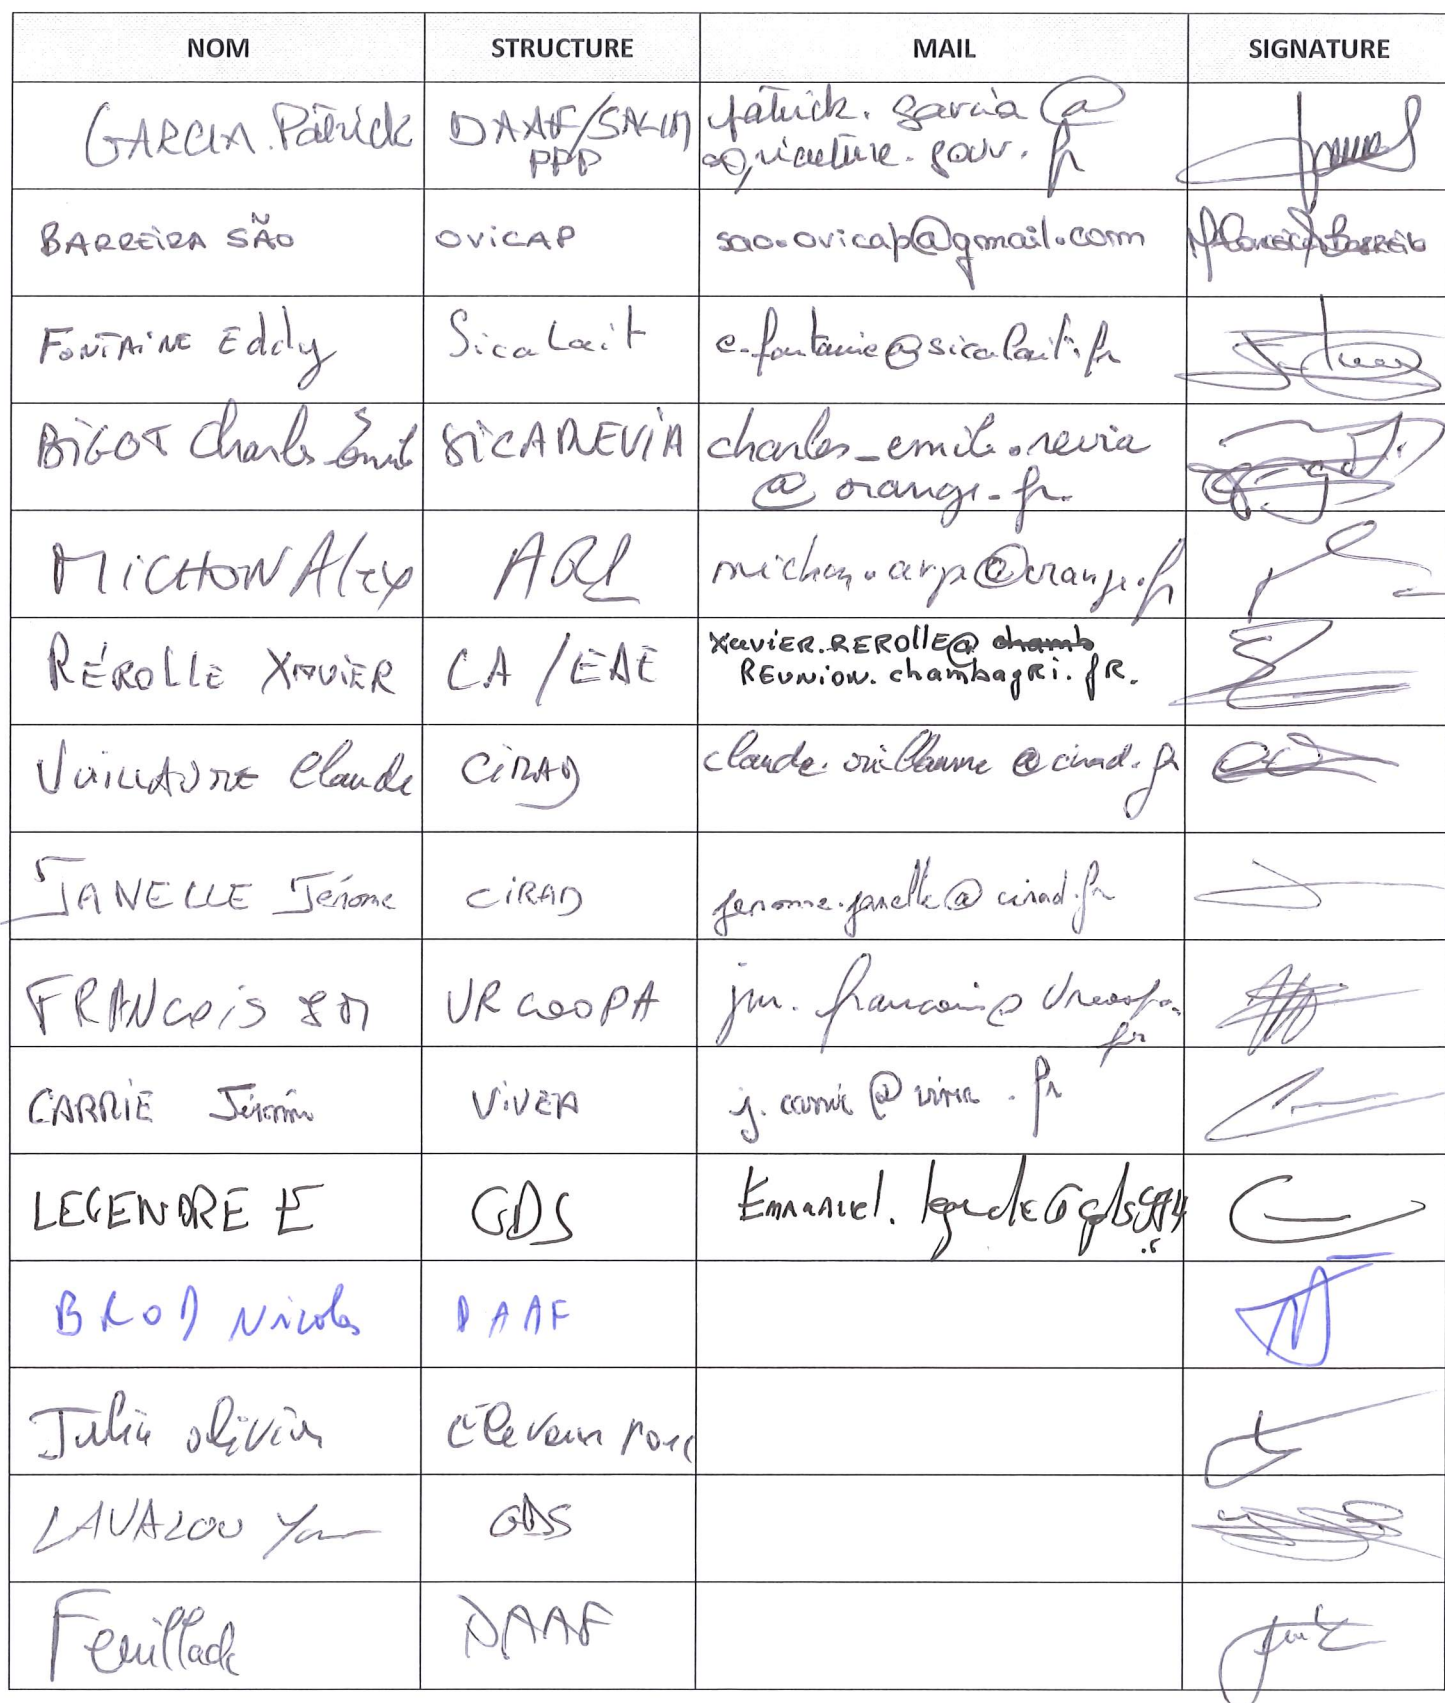 NOM STRUCTURE MAIL SIGNATURE
GARCIA Patrick DAAF/SALIM patrick.garcia@
PPP agriculture.gouv.fr
BARREIRA SÃO OVICAP sao.ovicap@gmail.com
FONTAINE Eddy Sica Lait e.fontaine@sicalait.fr
BIGOT Charles Émile SICAREVIA charles_emile.revia
@orange.fr
MICHON Alex michon.arp@orange.fr
RÉROLLE XAVIER CA/EDE XAVIER.REROLLE@ chamb
REUNION.chambagri.fR.
VUILLAUME Claude CIRAD claude.vuillaume@cirad.fr
JANELLE Jérome CIRAD jerome.janelle@cirad.fr
FRANCOIS JM URCOOPA jm.francois@urcoopa.
fr
CARRIE Jérémie VIVEA j.carrie@vivea.fr
LEGENDRE E GDS Emmanuel.
BROD Nicolas DAAF
Julie olivier Éleveur Porc
LAVALOU Yann GDS
Feuillade DAAF